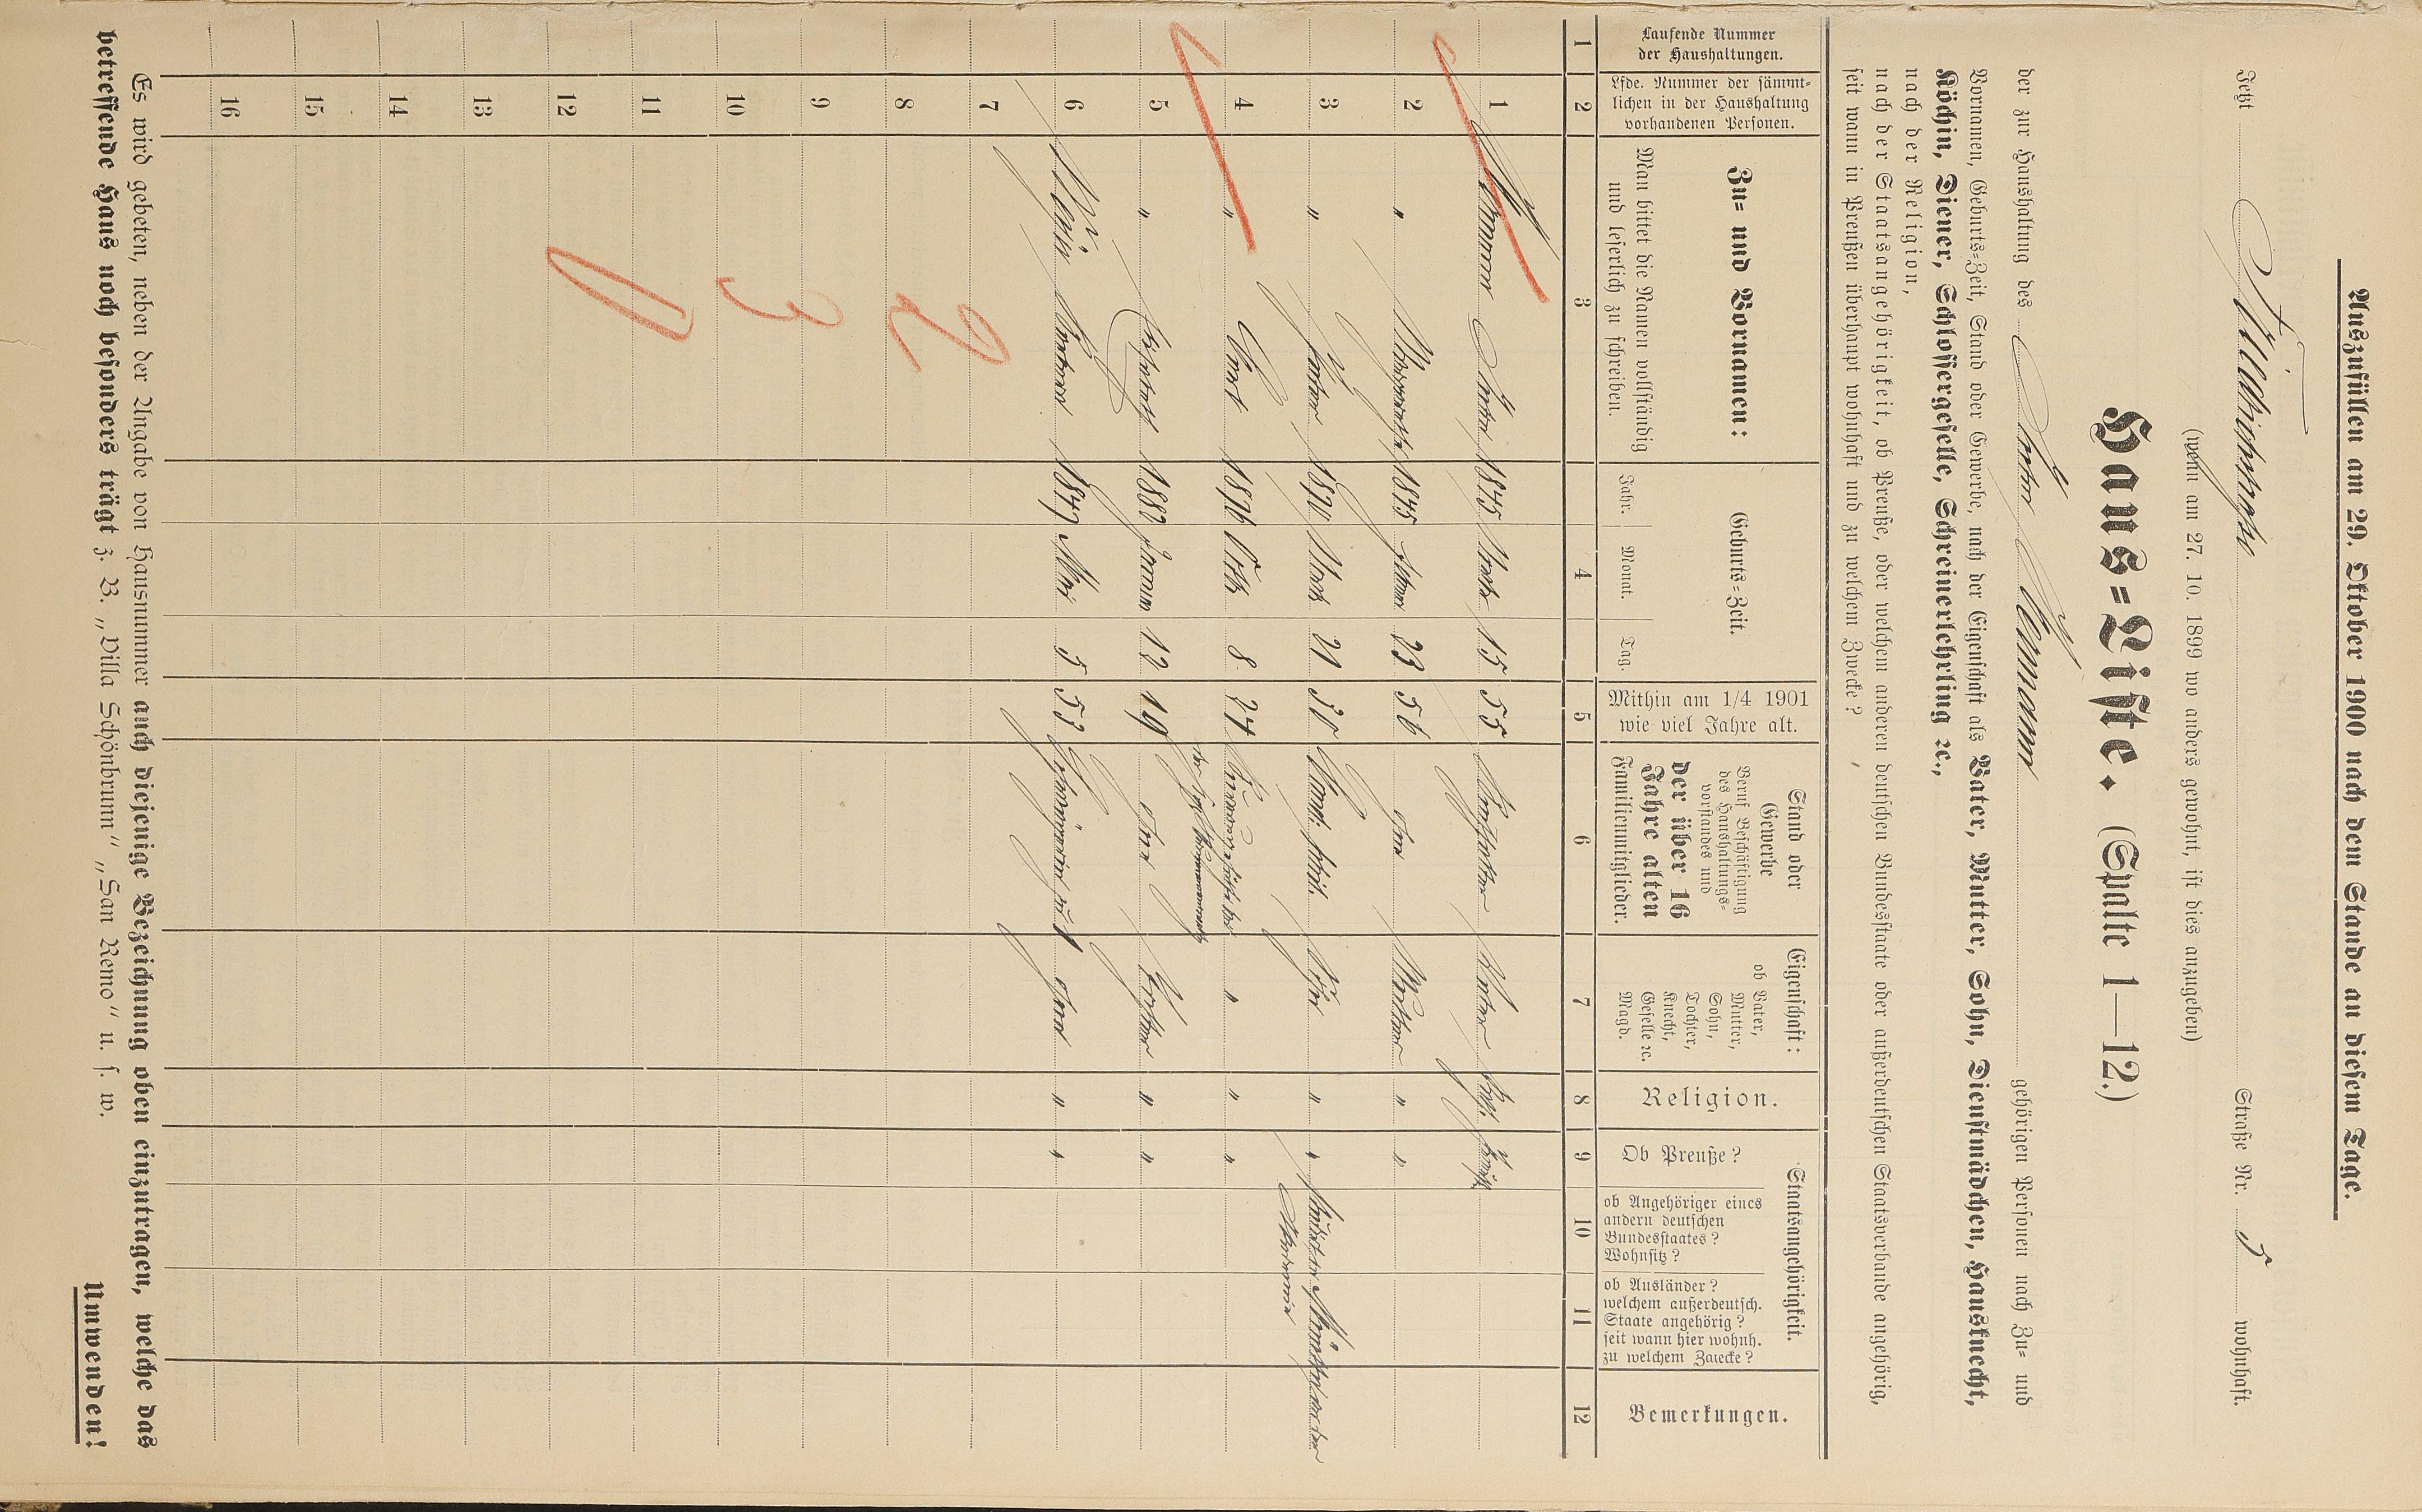 Auszufüllen am 29. Oktober 1900 nach dem Stande an diesem Tage.
Jetzt Straße Nr. 5 wohnhaft.
(wenn am 27. 10. 1899 wo anders gewohnt, ist dies anzugeben)
Haus-Liste. (Spalte 1—12.)
der zur Haushaltung des Anton Aumann gehörigen Personen nach Zu- und
Vornamen, Geburts-Zeit, Stand oder Gewerbe, nach der Eigenschaft als Vater, Mutter, Sohn, Dienstmädchen, Hausknecht,
Köchin, Diener, Schlossergeselle, Schreinerlehrling ꝛc.,
nach der Religion,
nach der Staatsangehörigkeit, ob Preuße, oder welchem anderen deutschen Bundesstaate oder außerdeutschen Staatsverbande angehörig,
seit wann in Preußen überhaupt wohnhaft und zu welchem Zwecke?
Laufende Nummer der Haushaltungen.
Lfde. Nummer der sämmt-
lichen in der Haushaltung
vorhandenen Personen.
Zu- und Vornamen:
Man bittet die Namen vollständig
und leserlich zu schreiben.
Geburts-Zeit.
Jahr. Monat. Tag.
Mithin am 1/4 1901
wie viel Jahre alt.
Stand oder
Gewerbe
Beruf Beschäftigung
des Haushaltungs-
vorstandes und
der über 16
Jahre alten
Familienmitglieder.
Eigenschaft:
ob Vater,
Mutter,
Sohn,
Tochter,
Knecht,
Geselle ꝛc.
Magd.
Religion.
Staatsangehörigkeit.
Ob Preuße?
ob Angehöriger eines
andern deutschen
Bundesstaates?
Wohnsitz?
ob Ausländer?
welchem außerdeutsch.
Staate angehörig?
seit wann hier wohnh.
zu welchem Zwecke?
Bemerkungen.
1 2 3 4 5 6 7 8 9 10 11 12
1 Aumann Anton 1845 15 55 Vater kath. Preuße
2 " Margaretha 1845 23 56 ohne Mutter " "
3 " Anton 1870 21 30 Sohn " "
4 " 1876 8 24 " " "
5 " Elisabeth 1882 Januar 12 19 ohne Tochter " "
6 1847 Mai 5 53 ohne " "
7
8
9
10
11
12
13
14
15
16
2
3
0
Es wird gebeten, neben der Angabe von Hausnummer auch diejenige Bezeichnung oben einzutragen, welche das
betreffende Haus noch besonders trägt z. B. „Villa Schönbrunn“ „San Remo“ u. s. w.
Umwenden!